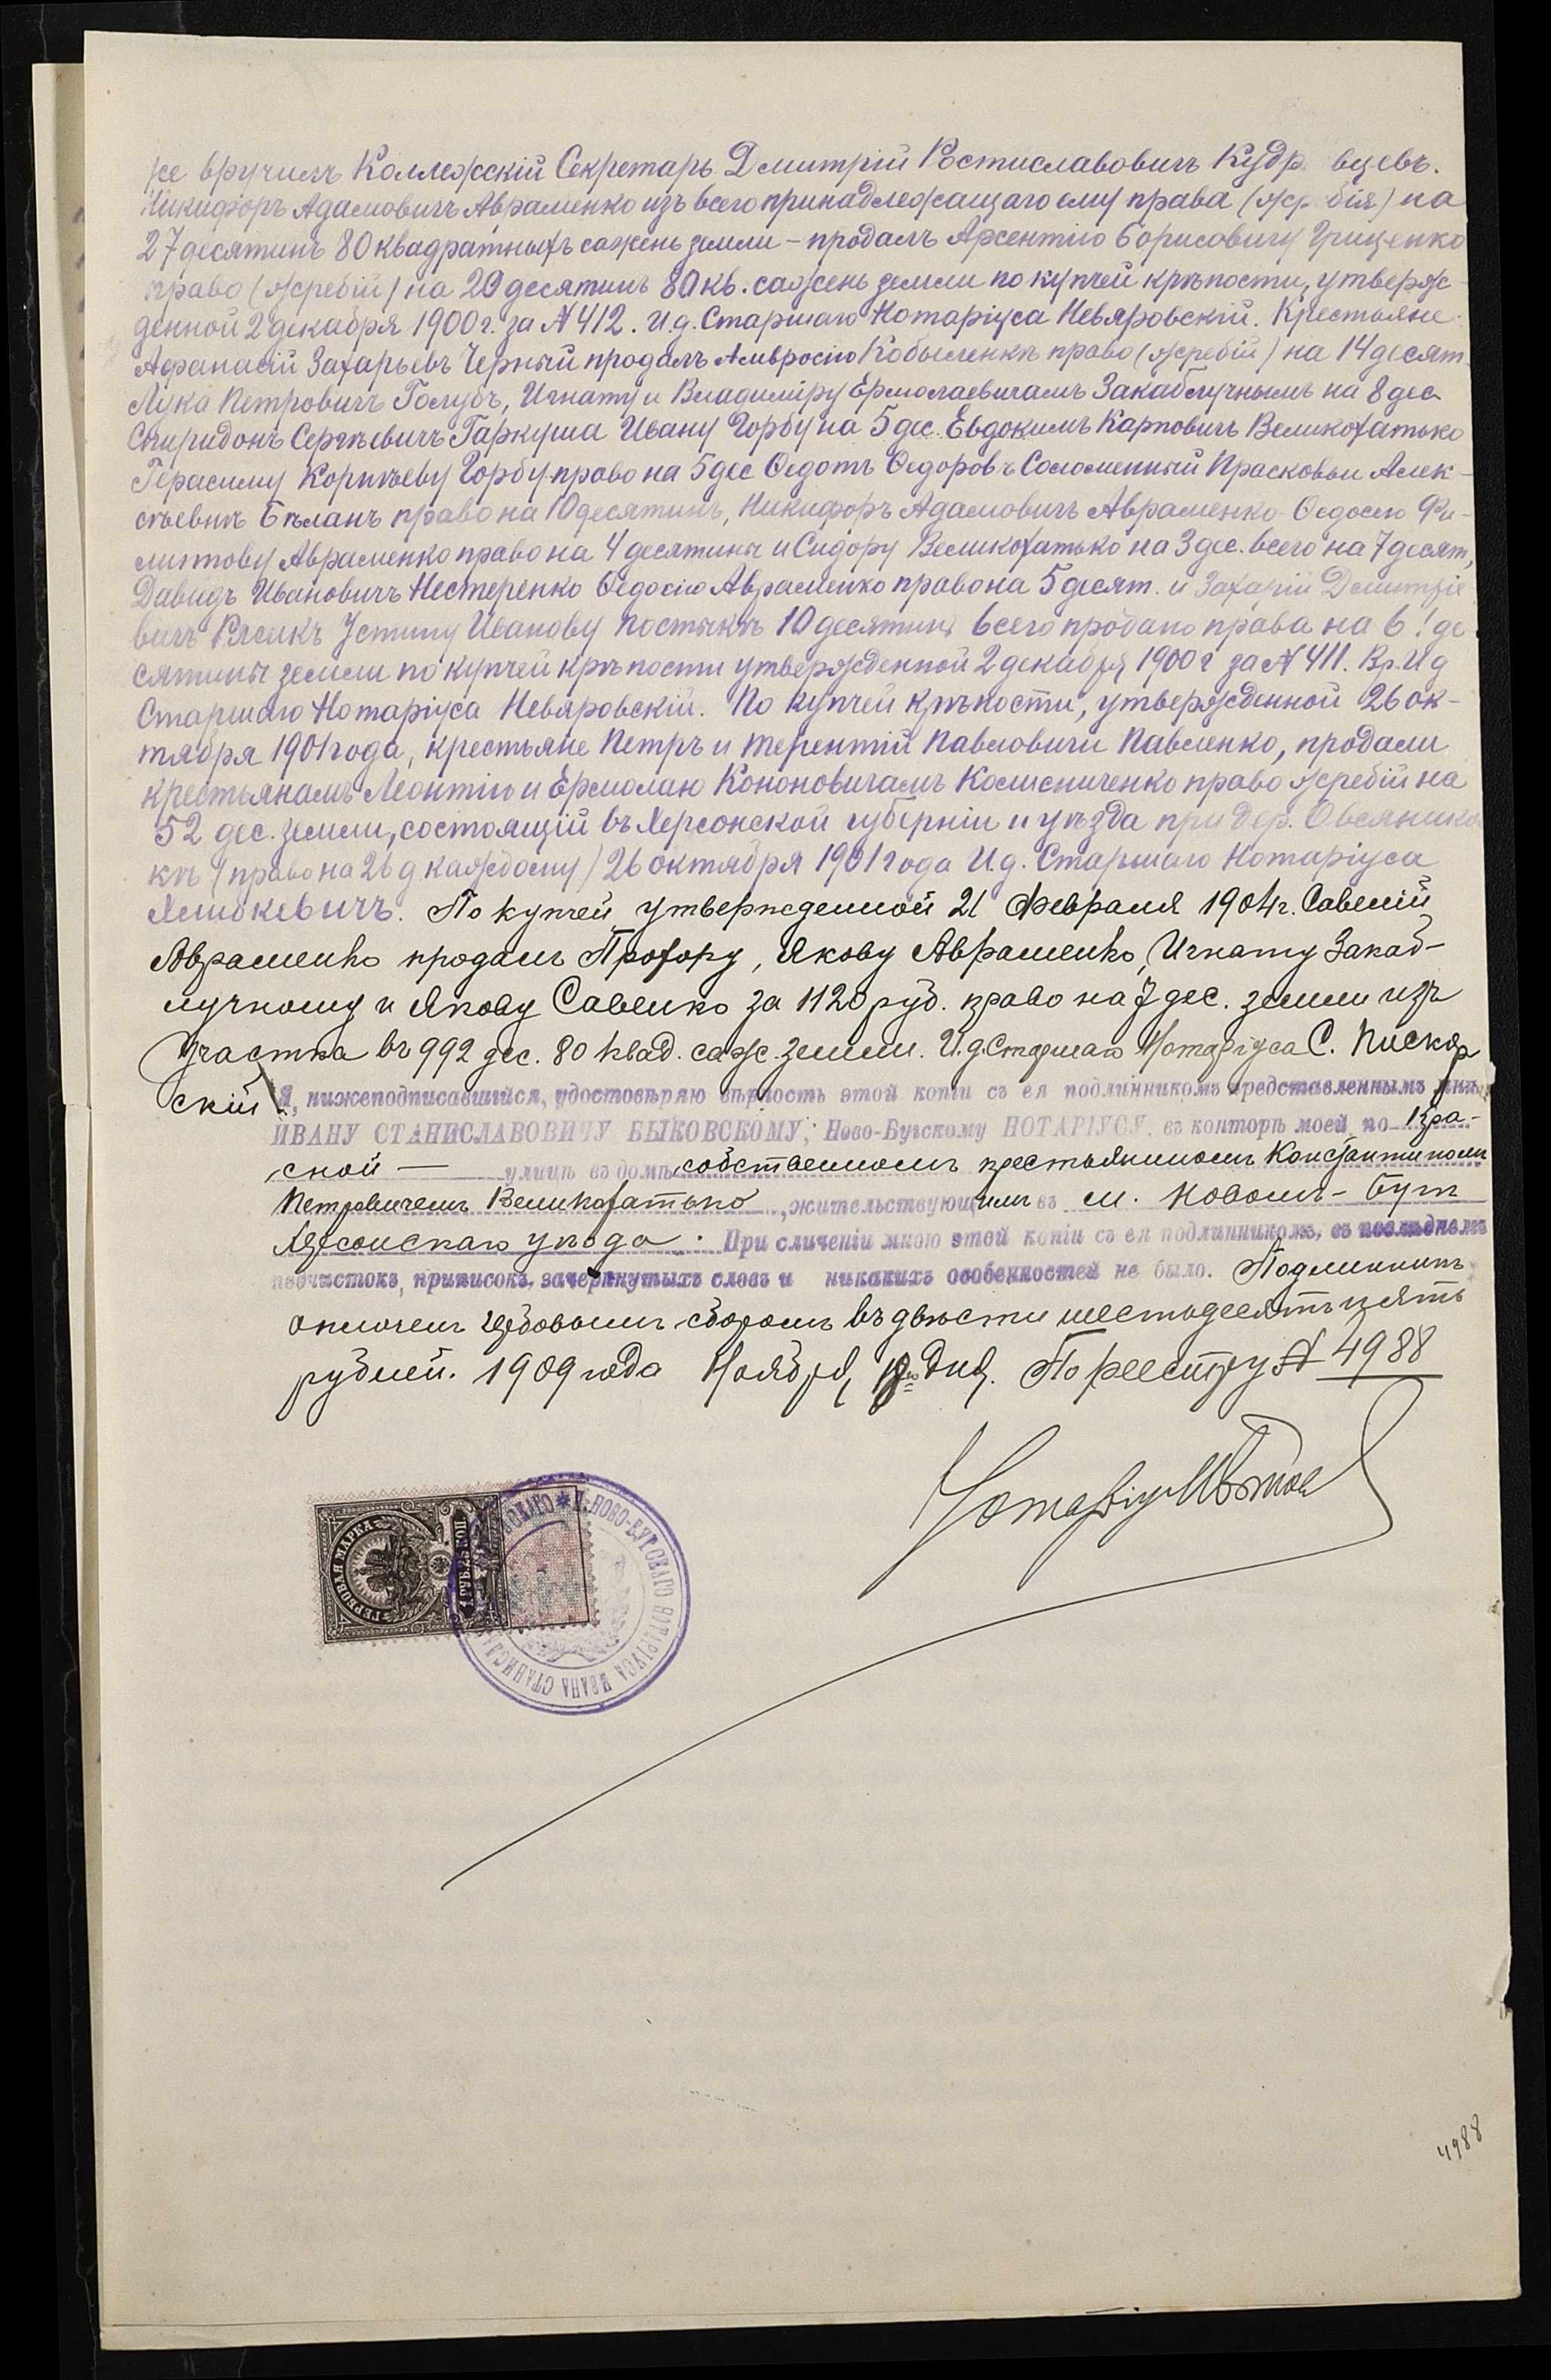 же вручилъ Коллежскій Секретарь Дмитрій Ростиславовичъ
Никифоръ Адамовичъ Авраменко изъ всего принадлежащаго ему права (жребія) на
27 десятинъ 80 квадратныхъ сажень земли – продалъ Арсентію Борисовичу Гриценко
право (жребій) на 20 десятинъ 80 кв. сажень земли по купчей крѣпости, утверж-
денной 2 декабря 1900 г. за № 412. И.д. Старшаго Нотаріуса Невяровскій. Крестьяне
Афанасій Захарьевъ Черный продалъ Амвросію Кобыленкѣ право (жребій) на 14 десят.
Лука Петровичъ Голубъ, Игнату и Владиміру Ермолаевичамъ Закаблучнымъ на 8 дес
Спиридонъ Сергѣевичъ Гаркуша Ивану Горбу на 5 дес. Евдокимъ Карповичъ Великохатько
Герасиму Корнѣеву Горбу право на 5 дес Ѳедотъ Ѳедоровъ Соломенный Прасковьи Алек-
сѣевнѣ Бѣланъ право на 10 десятинъ, Никифоръ Адамовичъ Авраменко Ѳедосію Фи-
липпову Авраменко право на 4 десятины и Сидору Великохатько на 3 дес. всего на 7 десят,
Давидъ Ивановичъ Нестеренко Ѳедосію Авраменко право на 5 десят. и Захарій Дмитріе
вичъ Устину Иванову 10 десятинъ всего продано права на де-
сятины земли по купчей крѣпости утвержденной 2 декабря 1900 г за № 411. Вр. И д
Старшаго Нотаріуса Невяровскій. По купчей крѣпости, утвержденной 26 ок-
тября 1901 года, крестьяне Петръ и Терентій Павловичи Павленко, продали
крестьянамъ Леонтію и Ермолаю Кононовичамъ Колисниченко право жребій на
52 дес. земли, состоящій въ Херсонской губерніи и уѣзда при дер. Овсянико
кѣ (право на 26 д каждому) 26 октября 1901 года И.д. Старшаго Нотаріуса
Ялшокевичъ. По купчей утвержденной 21 Февраля 1904 г. Савелій
Авраменко продалъ Прохору, Якову Авраменко, Игнату Закаб-
лучному и Якову Савенко за 1120 руб. право на 7 дес. земли изъ
участка въ 992 дес. 80 квад. саж. земли. И.д. Старшаго Нотаріуса С. Пискар
скій Я, нижеподписавшійся, удостовѣряю вѣрность этой копіи съ ея подлинникомъ представленнымъ мнѣ
ИВАНУ СТАНИСЛАВОВИЧУ БЫКОВСКОМУ, Ново-Бугскому НОТАРІУСУ, въ конторѣ моей по Кра-
сной — улицѣ въ домѣ собственномъ крестьяниномъ Константиномъ
Петровичемъ Великохатько, жительствующимъ въ м. Новомъ-Бугѣ
Херсонскаго уѣзда. При сличеніи мною этой копіи съ ея подлинникомъ, въ послѣднемъ
подчистокъ, приписокъ, зачеркнутыхъ словъ и никакихъ особенностей не было. Подлинникъ
оплаченъ гербовымъ сборомъ въ двѣсти шестьдесятъ пять
рублей. 1909 года Ноября дня. По реестру № 4988
Нотаріусъ
ГЕРБОВАЯ МАРКА
М. НОВО-БУГСКАГО НОТАРІУСА ИВАНА СТАНИСЛ
4988